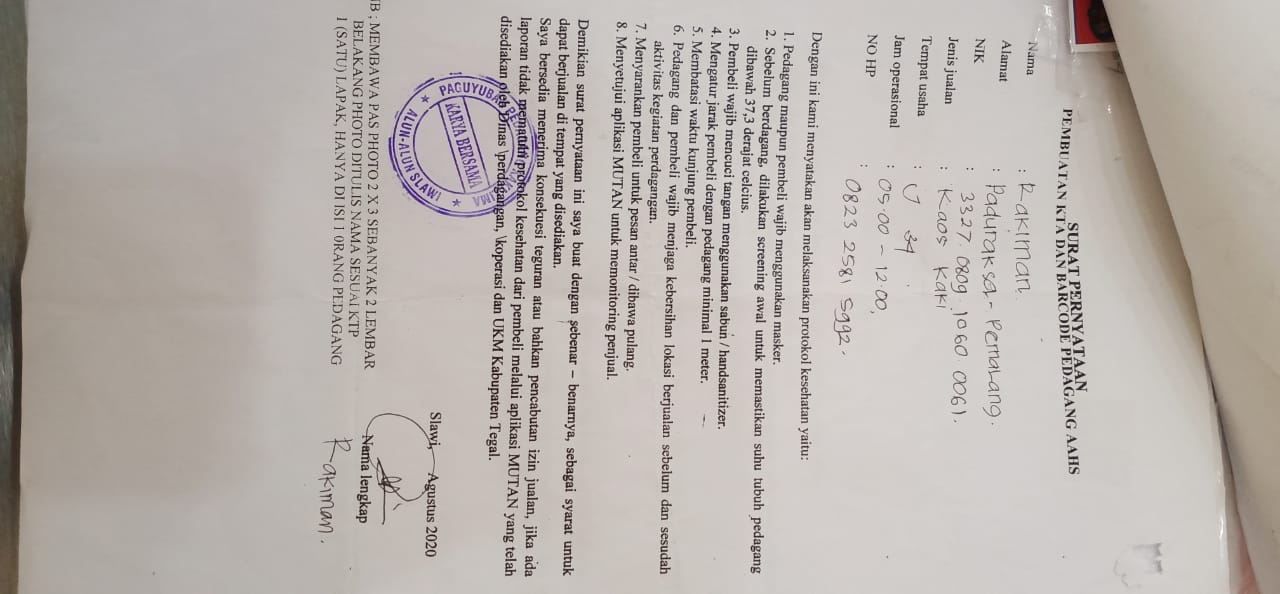 SURAT PERNYATAAN
PEMBUATAN KTA DAN BARCODE PEDAGANG AAHS
Nama : Rakiman.
Alamat : Paduraksa - Pemalang.
NIK : 3327.0809.1060 0061.
Jenis jualan : Kaos Kaki
Tempat usaha : U 34.
Jam operasional : 05.00 - 12.00.
NO HP : 0823 2581 5992.
Dengan ini kami menyatakan akan melaksanakan protokol kesehatan yaitu:
1. Pedagang maupun pembeli wajib menggunakan masker.
2. Sebelum berdagang, dilakukan screening awal untuk memastikan suhu tubuh pedagang
dibawah 37,3 derajat celcius.
3. Pembeli wajib mencuci tangan menggunakan sabun / handsanitizer.
4. Mengatur jarak pembeli dengan pedagang minimal 1 meter.
5. Membatasi waktu kunjung pembeli.
6. Pedagang dan pembeli wajib menjaga kebersihan lokasi berjualan sebelum dan sesudah
aktivitas kegiatan perdagangan.
7. Menyarankan pembeli untuk pesan antar / dibawa pulang.
8. Menyetujui aplikasi MUTAN untuk memonitoring penjual.
Demikian surat pernyataan ini saya buat dengan sebenar – benarnya, sebagai syarat untuk
dapat berjualan di tempat yang disediakan.
Saya bersedia menerima konsekuesi teguran atau bahkan pencabutan izin jualan, jika ada
laporan tidak mematuhi protokol kesehatan dari pembeli melalui aplikasi MUTAN yang telah
disediakan oleh Dinas \perdagangan, \koperasi dan UKM Kabupaten Tegal.
PAGUYUBAN
KARYA BERSAMA
ALUN-ALUN SLAWI
Slawi, Agustus 2020
Nama lengkap
Rakiman.
NB ; MEMBAWA PAS PHOTO 2 X 3 SEBANYAK 2 LEMBAR
BELAKANG PHOTO DITULIS NAMA SESUAI KTP
1 (SATU) LAPAK, HANYA DI ISI 1 0RANG PEDAGANG